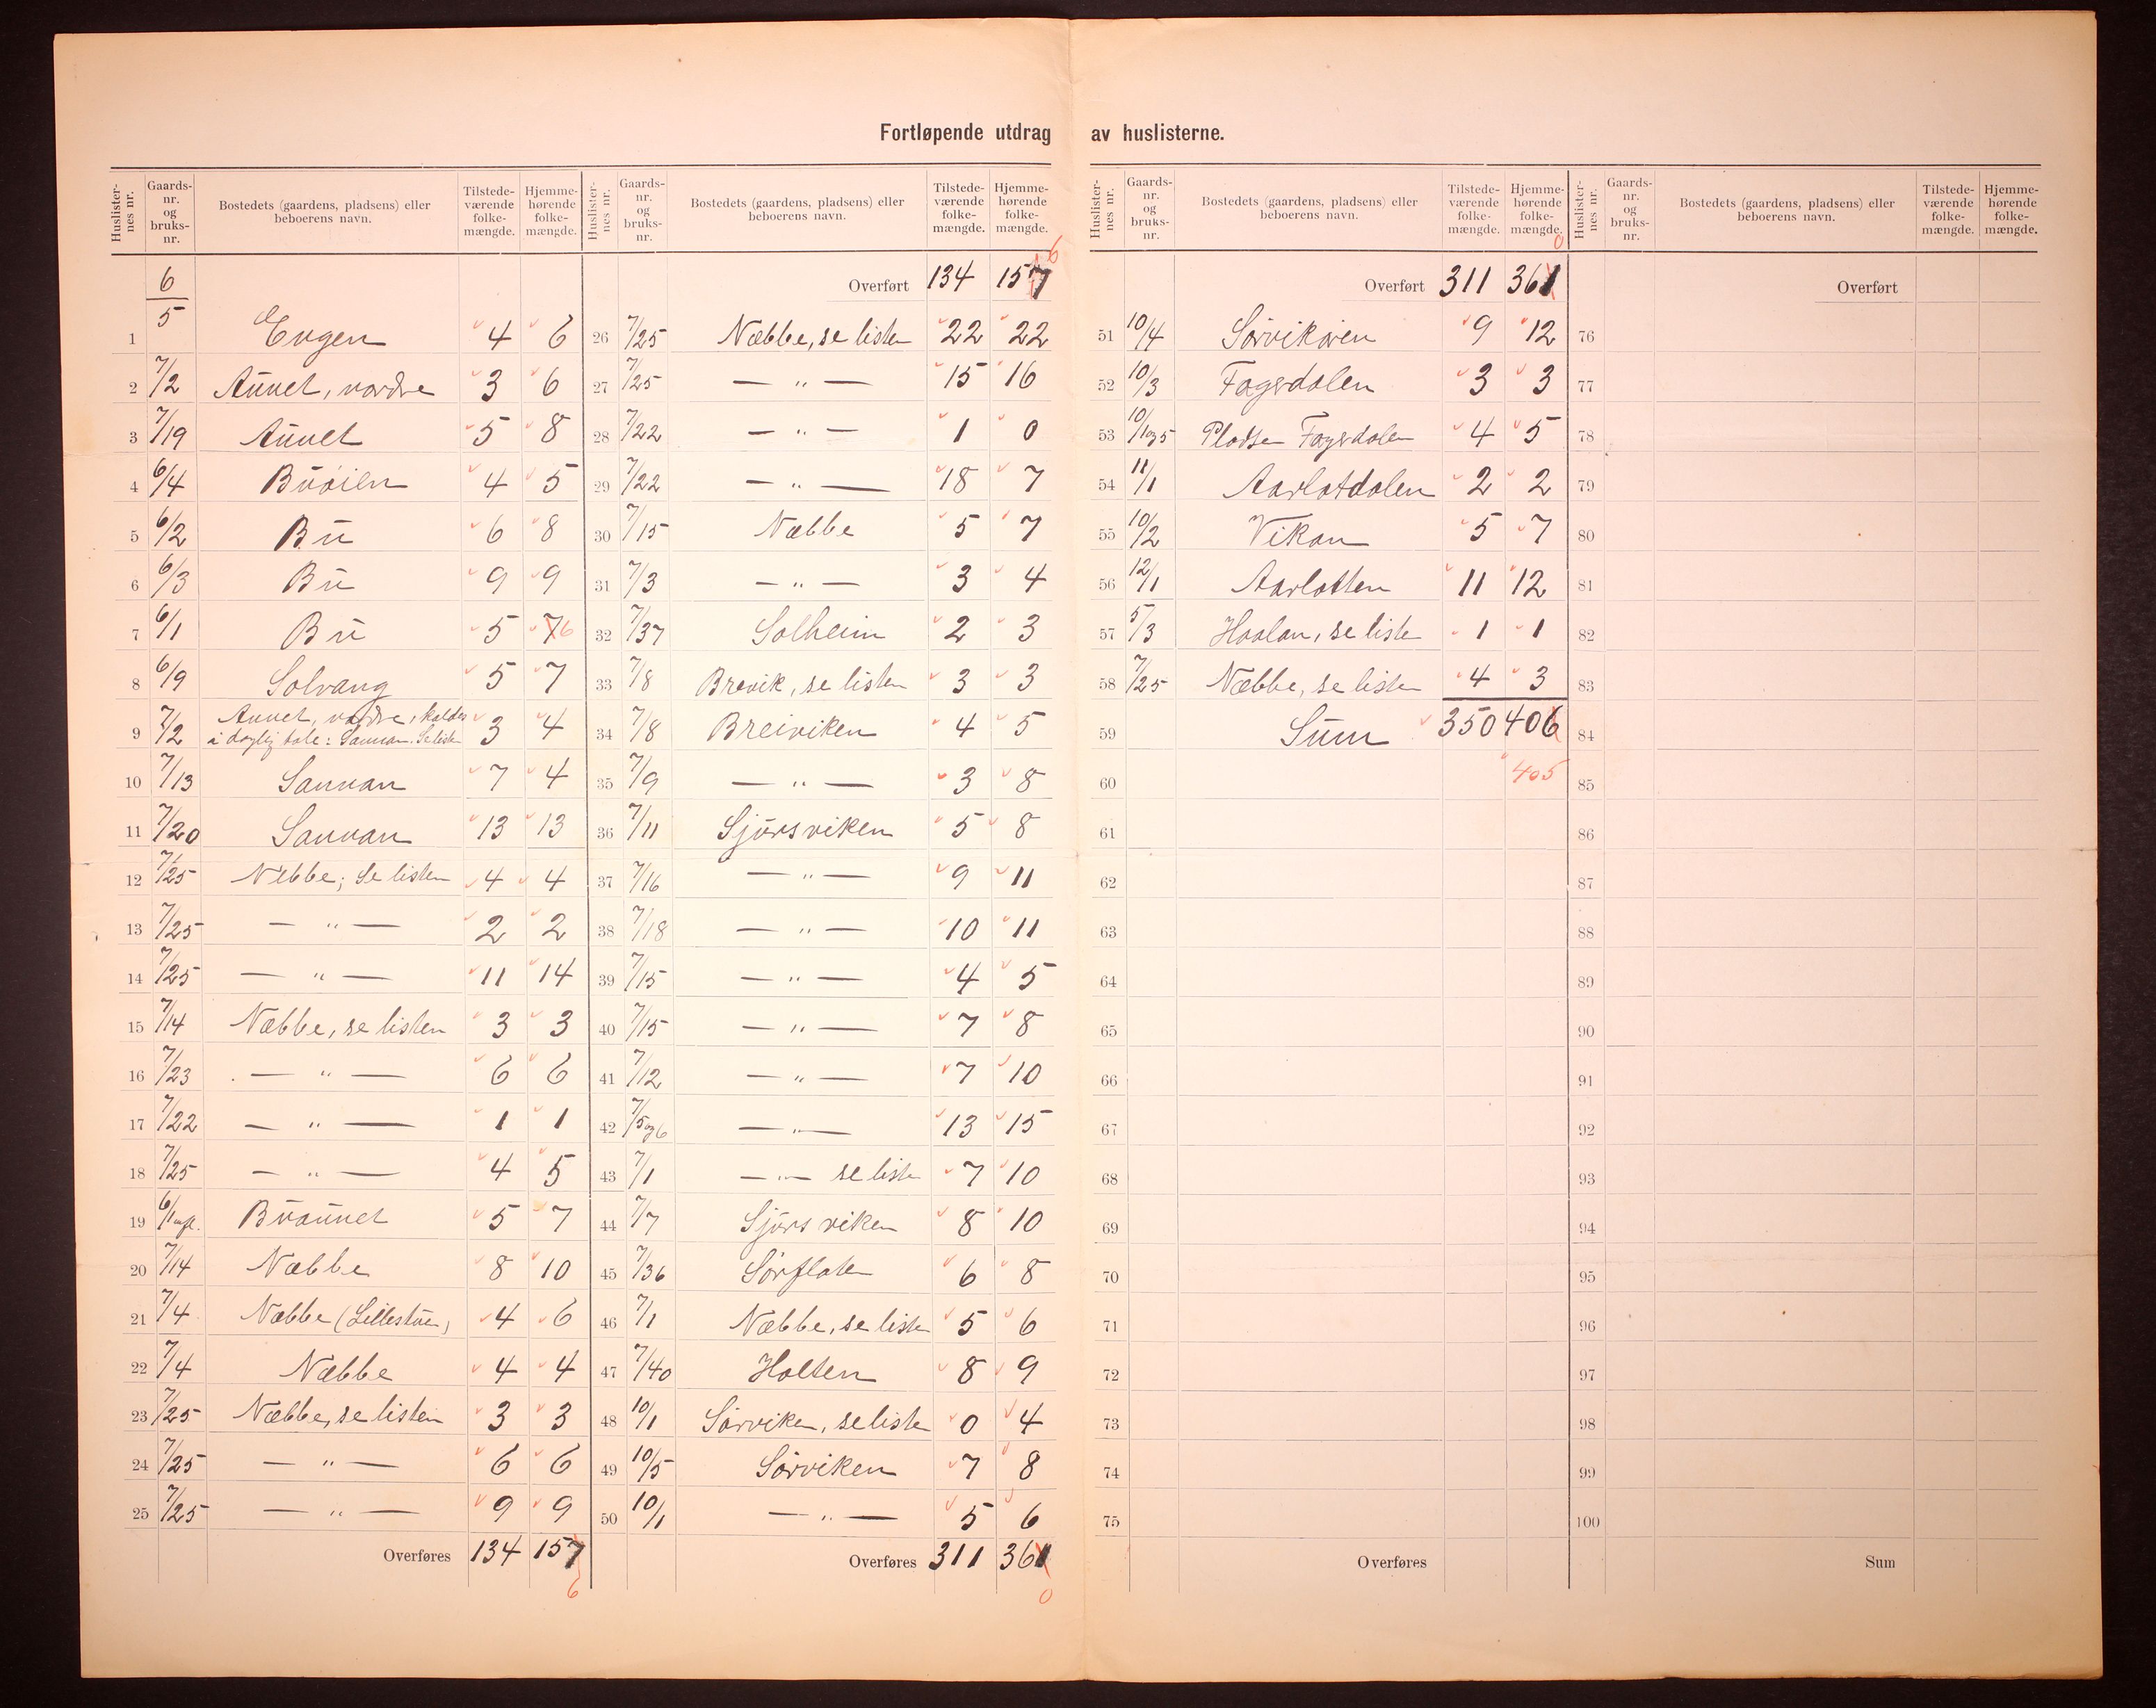 Fortløpende utdrag av huslisterne.
Huslister-nes nr. Gaards-nr. og bruks-nr. Bostedets (gaardens, pladsens) eller beboerens navn. Tilstede-værende folke-mængde. Hjemme-hørende folke-mængde.
1 6/5 Engen 4 6
2 7/2 Aunet, nordre 3 6
3 7/19 Aunet 5 8
4 6/4 Buöien 4 5
5 6/2 Bu 6 8
6 6/3 Bu 9 9
7 6/1 Bu 5 7 6
8 6/9 Solvang 5 7
9 7/2 Aunet, nordre, kaldes
i daglig tale: Sannan. Se listen 3 4
10 7/13 Sannan 7 4
11 7/20 Sannan 13 13
12 7/25 Nebbe; Se listen 4 4
13 7/25 — " — 2 2
14 7/25 — " — 11 14
15 7/14 Næbbe, se listen 3 3
16 7/23 — " — 6 6
17 7/22 — " — 1 1
18 7/25 — " — 4 5
19 6/1 Buaunet 5 7
20 7/14 Næbbe 8 10
21 7/4 Næbbe (Lillestuen) 4 6
22 7/4 Næbbe 4 4
23 7/25 Næbbe, se listen 3 3
24 7/25 — " — 6 6
25 7/25 — " — 9 9
Overføres 134 157
6
Huslister-nes nr. Gaards-nr. og bruks-nr. Bostedets (gaardens, pladsens) eller beboerens navn. Tilstede-værende folke-mængde. Hjemme-hørende folke-mængde.
6
Overført 134 157
26 7/25 Næbbe, se listen 22 22
27 7/25 — " — 15 16
28 7/22 — " — 1 0
29 7/22 — " — 18 7
30 7/15 Næbbe 5 7
31 7/3 — " — 3 4
32 7/37 Solheim 2 3
33 7/8 Brevik, se listen 3 3
34 7/8 Breiviken 4 5
35 7/9 — " — 3 8
36 7/11 Sjursviken 5 8
37 7/16 — " — 9 11
38 7/18 — " — 10 11
39 7/15 — " — 4 5
40 7/15 — " — 7 8
41 7/12 — " — 7 10
42 7/5 og 6 — " — 13 15
43 7/1 — " — se listen 7 10
44 7/7 Sjursviken 8 10
45 7/36 Sörflaten 6 8
46 7/1 Næbbe, se listen 5 6
47 7/40 Holten 8 9
48 10/1 Sörviken, se listen 0 4
49 10/5 Sörviken 7 8
50 10/1 — " — 5 6
Overføres 311 361
0
Huslister-nes nr. Gaards-nr. og bruks-nr. Bostedets (gaardens, pladsens) eller beboerens navn. Tilstede-værende folke-mængde. Hjemme-hørende folke-mængde.
0
Overført 311 361
51 10/4 Sörviköien 9 12
52 10/3 Fagerdalen 3 3
53 10/1 og 5 Pladsen Fagerdalen 4 5
54 11/1 Aarlotdalen 2 2
55 10/2 Vikan 5 7
56 12/1 Aarlotten 11 12
57 5/3 Haalan, se listen 1 1
58 7/25 Næbbe, se listen 4 3
59 Sum 350 406
60 405
61
62
63
64
65
66
67
68
69
70
71
72
73
74
75
Overføres
Huslister-nes nr. Gaards-nr. og bruks-nr. Bostedets (gaardens, pladsens) eller beboerens navn. Tilstede-værende folke-mængde. Hjemme-hørende folke-mængde.
Overført
76
77
78
79
80
81
82
83
84
85
86
87
88
89
90
91
92
93
94
95
96
97
98
99
100
Sum